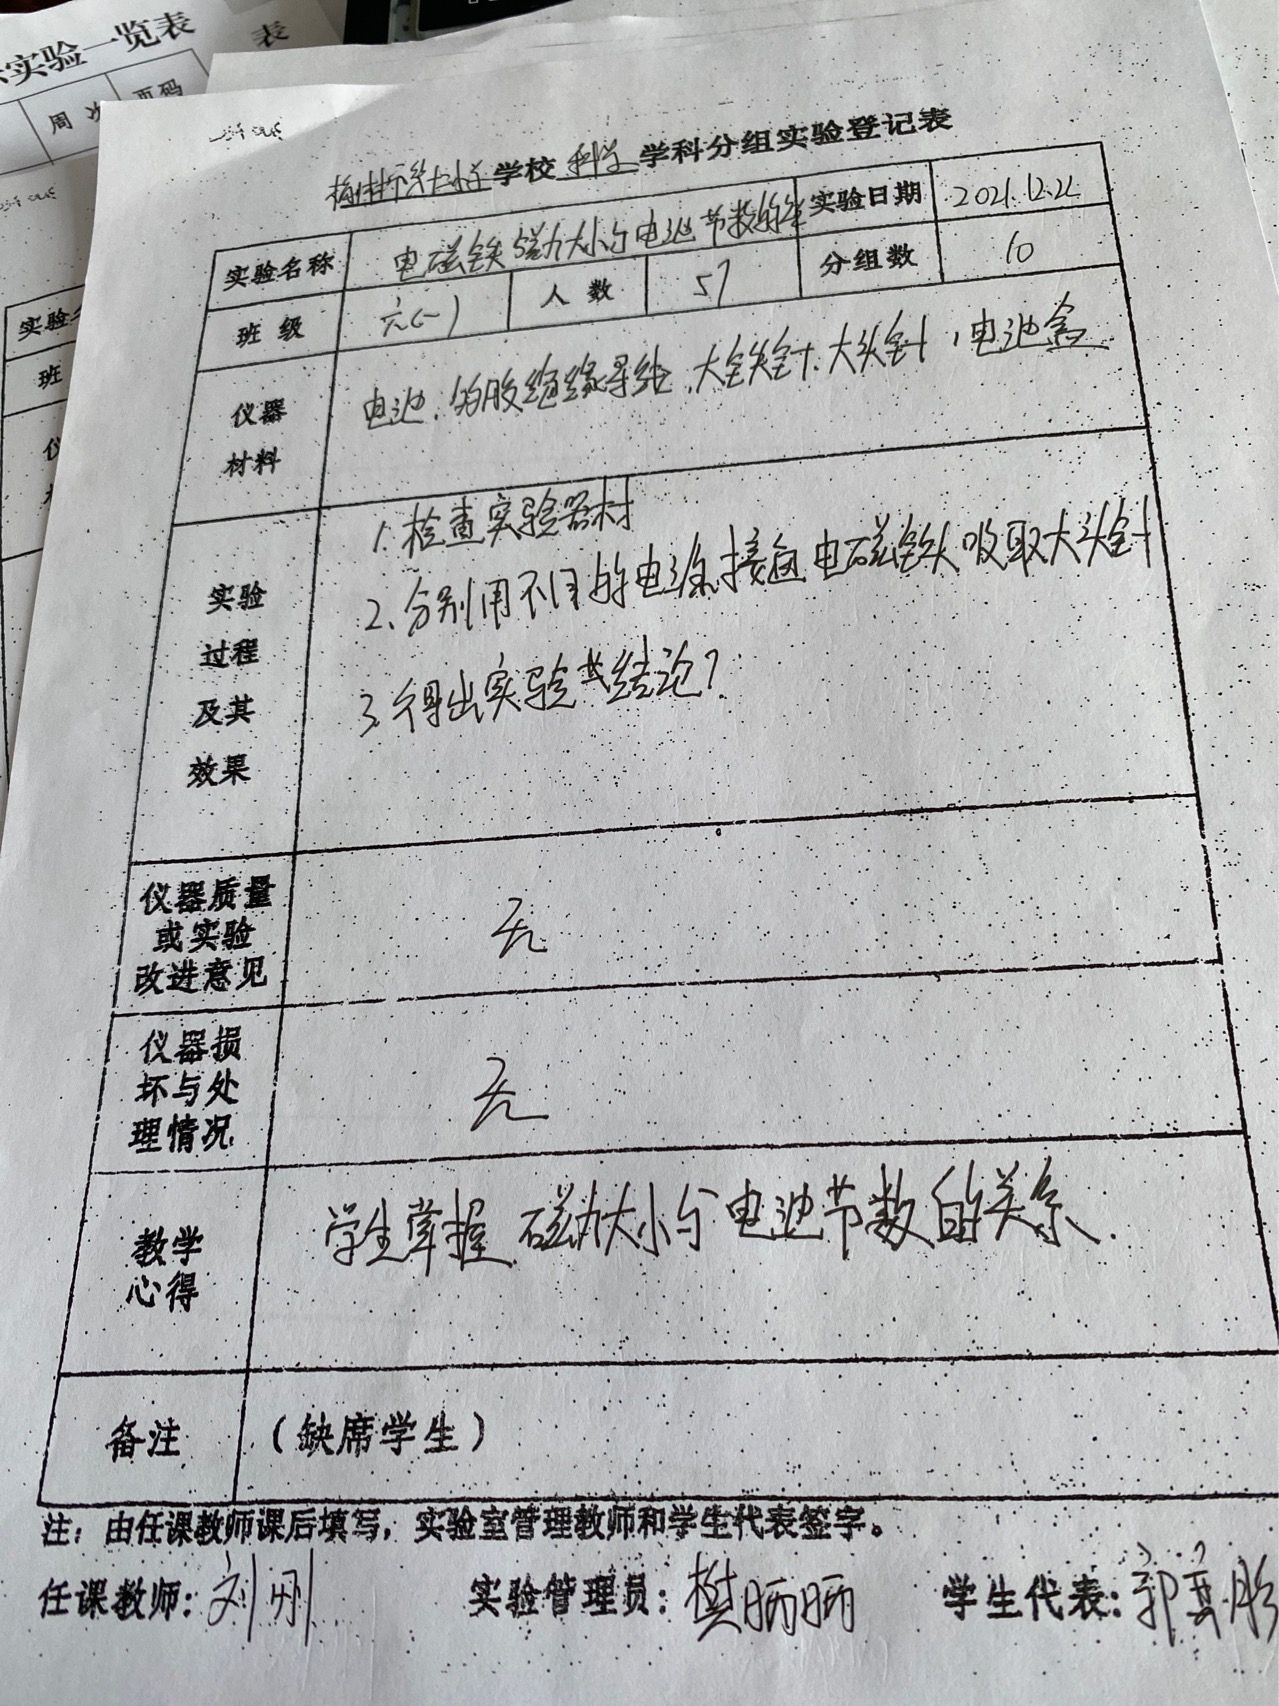 实验一览表
表
周 次
页码
学校 科学 学科分组实验登记表
实验名称 电磁铁磁力大小与电池节数的关 实验日期 2021.12.22
班 级 六(一) 人 数 57 分组数 10
仪器
材料
电池、的胶绝缘导线、大铁针、大头针、电池盒
实验
过程
及其
效果
1. 检查实验器材
2. 分别用不同的电池接通电磁铁吸取大头针
3. 得出实验结论?
仪器质量
或实验
改进意见
无
仪器损
坏与处
理情况
无
教学
心得
学生掌握磁力大小与电池节数的关系.
备注 (缺席学生)
注: 由任课教师课后填写, 实验室管理教师和学生代表签字。
任课教师: 刘刚 实验管理员: 樊丽丽 学生代表:
实验
班